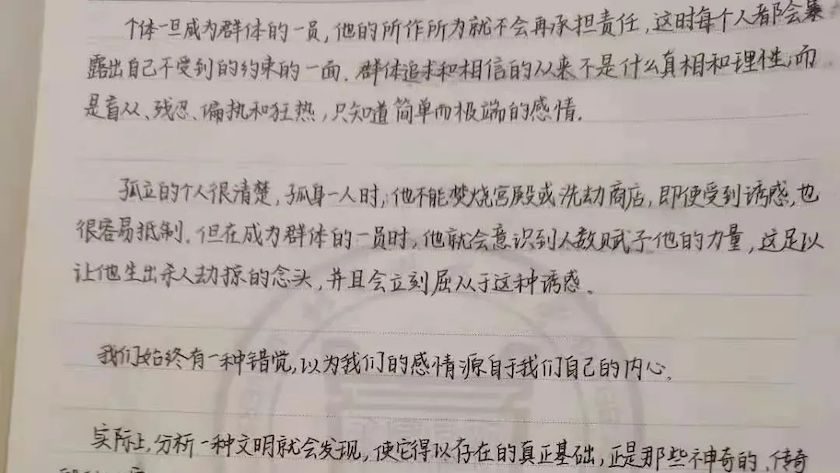 个体一旦成为群体的一员,他的所作所为就不会再承担责任,这时每个人都会暴
露出自己不受到的约束的一面.群体追求和相信的从来不是什么真相和理性,而
是盲从、残忍、偏执和狂热,只知道简单而极端的感情.
孤立的个人很清楚,孤身一人时,他不能焚烧宫殿或洗劫商店,即使受到诱惑,也
很容易抵制.但在成为群体的一员时,他就会意识到人数赋予他的力量,这足以
让他生出杀人劫掠的念头,并且会立刻屈从于这种诱惑。
我们始终有一种错觉,以为我们的感情源自于我们自己的内心.
实际上,分析一种文明就会发现,使它得以存在的真正基础,正是那些神奇的、传奇